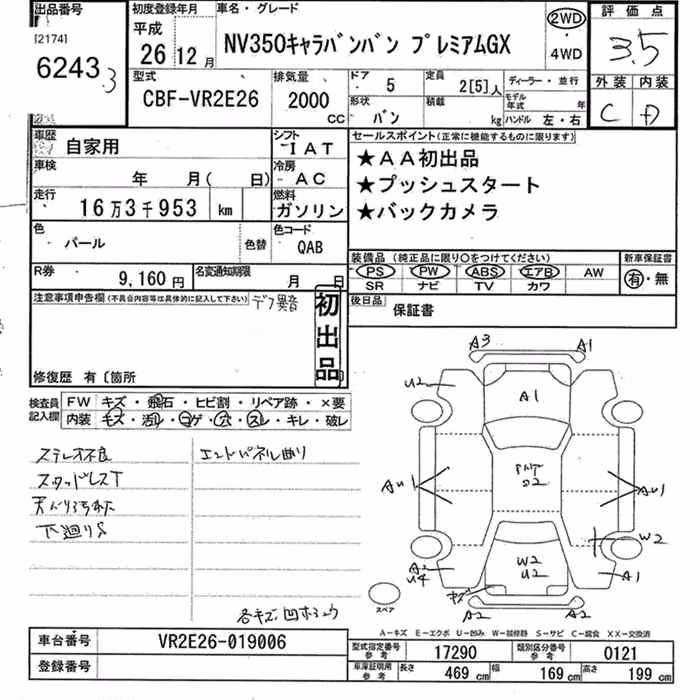 出品番号
[2174]
6243 3
初度登録年月
平成
26年 12月
車名・グレード
NV350キャラバンバン プレミアムGX
2WD
・
4WD
評価点
3.5
外装 内装
C D
型式
CBF-VR2E26
排気量
2000 CC
ドア
5
定員
2[5]人
ディーラー・並行
形状
バン
積載
kg
モデル年式 年
ハンドル 左・右
車歴
自家用
シフト
IAT
車検
年 月( 日)
冷房
AC
走行
16万3千953 km
燃料
ガソリン
色
パール
色替
色コード
QAB
R券
9,160 円
名変通知期限
月 日
セールスポイント(正常に機能するものに限ります)
★AA初出品
★プッシュスタート
★バックカメラ
装備品 (純正品に限り○をつけてください)
PS PW ABS エアB AW
SR ナビ TV カワ
新車保証書
有・無
後日品
保証書
注意事項申告欄(不具合内容等は具体的に記入して下さい)
デフ異音
初出品
修復歴 有〔箇所
検査員記入欄
FW キズ・飛石・ヒビ割・リペア跡・×要
内装 キズ・汚レ・コゲ・穴・スレ・キレ・破レ
ステレオ不良
エンドパネル曲り
スタッドレスT
下廻りS
各キズ凹ホコウ
A3 A1
U2
A1
AU1
AU1
W2
W2
U2
A2
U4
A1
キズ
A2 A2
スペア
A－キズ E－エクボ U－凹み W－補修跡 S－サビ C－腐食 XX－交換済
車台番号
VR2E26-019006
登録番号
型式指定番号
参考
17290
類別区分番号
参考
0121
車庫証明用
参考
長さ
469 cm
幅
169 cm
高さ
199 cm